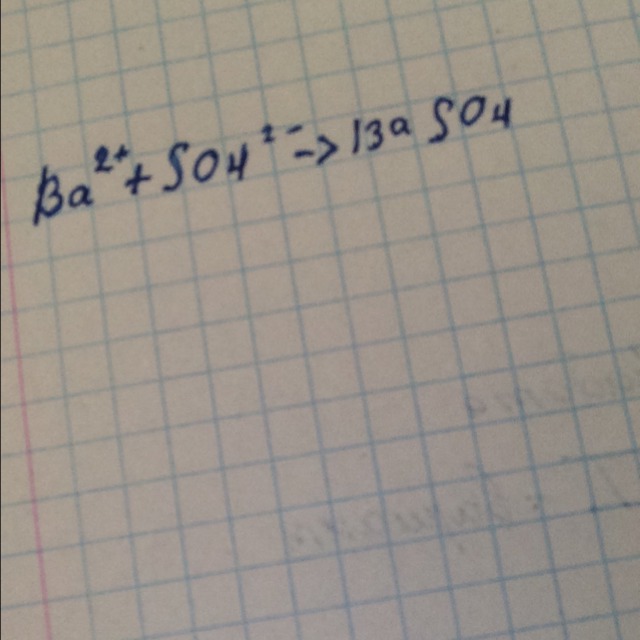 Ba²⁺ + SO4²⁻ -> BaSO4